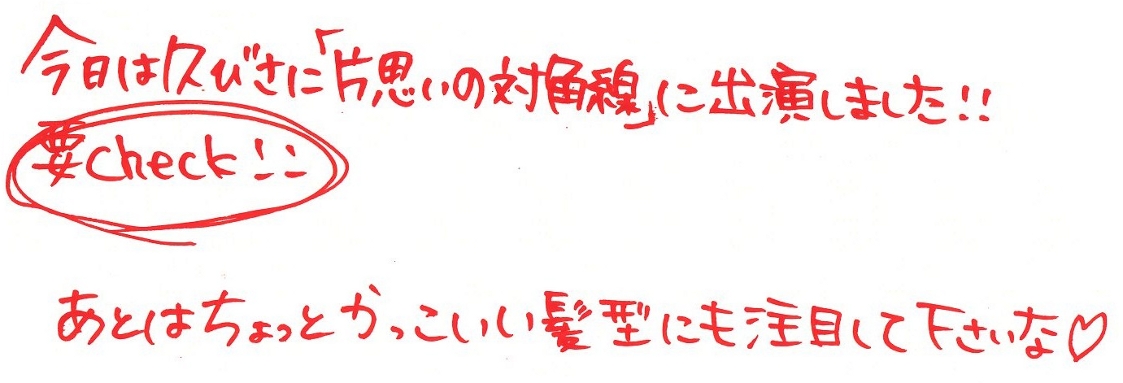 今日は久びさに「片思いの対角線」に出演しました!!
要check!!
あとはちょっとかっこいい髪型にも注目して下さいな♡